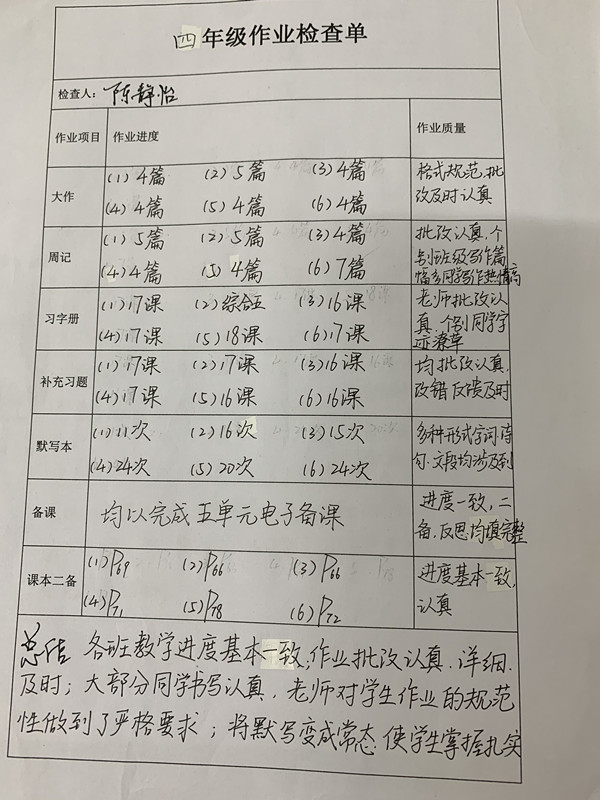 四年级作业检查单
检查人：陈静怡
作业项目 作业进度 作业质量
大作 (1) 4篇 (2) 5篇 (3) 4篇 格式规范，批
(4) 4篇 (5) 4篇 (6) 4篇 改及时认真
周记 (1) 5篇 (2) 5篇 (3) 4篇 批改认真，个
(4) 4篇 (5) 4篇 (6) 7篇 别班级写作篇
幅多同学写作热情高
习字册 (1) 17课 (2) 综合五 (3) 16课 老师批改认
(4) 17课 (5) 18课 (6) 17课 真，个别同学字
迹潦草
补充习题 (1) 17课 (2) 17课 (3) 16课 均批改认真，
(4) 17课 (5) 16课 (6) 16课 改错反馈及时
默写本 (1) 11次 (2) 16次 (3) 15次 多种形式字词诗
(4) 24次 (5) 20次 (6) 24次 句、文段均涉及到
备课 均以完成五单元电子备课 进度一致，二
备，反思均填完整
课本二备 (1) P69 (2) P66 (3) P66 进度基本一致，
(4) P71 (5) P78 (6) P72 认真
总结 各班教学进度基本一致，作业批改认真、详细、
及时；大部分同学书写认真，老师对学生作业的规范
性做到了严格要求；将默写变成常态，使学生掌握扎实